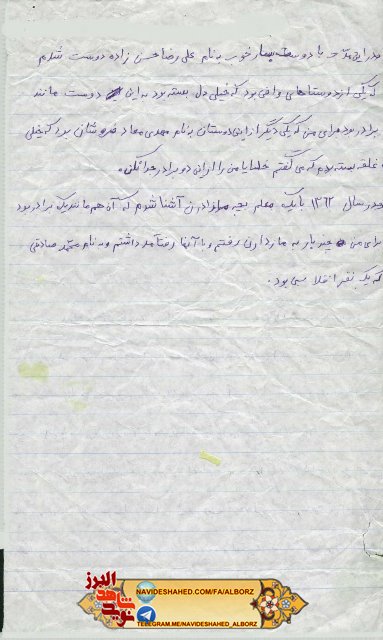 در این مدت با دوست بسیار خوب به نام علی رضا حسن زاده دوست شدم
که یکی از دوستهای وافی بود که خیلی دل بسته بود به این دوست مانند
برادر بود برای من که یکی دیگر از این دوستان به نام مهدی بود که خیلی
علاقه بسته بودم که می گفتم خدایا من را از این دو برادر جدا نکن.
در سال ۱۳۶۲ با یک معلم بچه مازندران آشنا شدم که آن هم مانند یک برادر بود
برای من چند بار به مازندران رفتم و با آنها رفت آمد داشتم و به نام محمد صادقی
که یک نفر انقلابی بود.
نوید شاهد البرز
NAVIDESHAHED.COM/FA/ALBORZ
TELEGRAM.ME/NAVIDESHAHED_ALBORZ